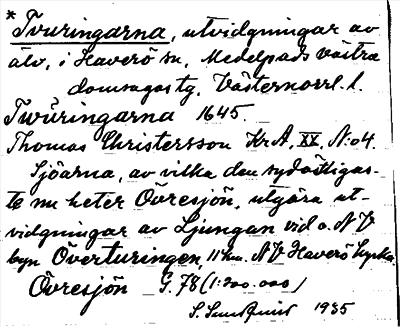 * Tvuringarna, utvidgningar av
älv, i Haverö sn, Medelpads västra
domsagas tg, Västernorrl. l.
Twùringarna 1645.
Thomas Christersson Kr A, XX, N:o 4.
Sjöarna, av vilka den sydöstligas-
te nu heter Övresjön, utgöra ut-
vidgningar av Ljungan vid o. NV
byn Överturingen, 11 km. NV Haverö kyrka.
Övresjön G. 78 (1:200.000)
S. Sundquist 1935